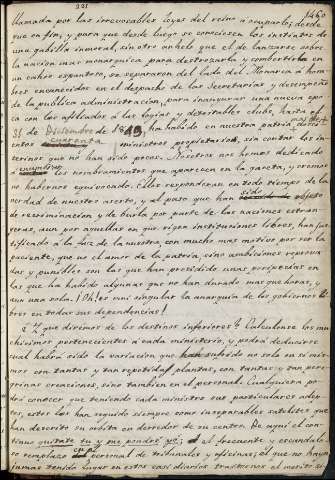 221
146
llamada por las irrevocables leyes del reino á ocuparlos, desde
que en fin, y para que desde luego se conociesen los instintos de
una gabilla inmoral, sin otro anhelo que el de lanzarse sobre
la nacion mas monarquica para destrozarla y combertirla en
un cahos espantoso, se separaron del lado del Monarca á hom-
bres encanecidos en el despacho de las Secretarías y desempeño
de la publica administracion, para inaugurar una nueva epo-
ca con los afiliados á las logias y detestables clubs, hasta el
31 de Diciembre de 1843, ha habido en nuestra patria
cuarenta ministros propietarios, sin contar los in-
terinos que no han sido pocos. Nosotros nos hemos dedicado
los nombramientos que aparecen en la gaceta, y creemos
no habernos equivocado. Ellas responderan en todo tiempo de la
verdad de nuestro aserto, y al paso que han sido objeto
de recriminacion y de burla por parte de las naciones estran-
geras, aun por aquellas en que rigen instituciones libres, han jus-
tificado á la faz de la nuestra, con mucho mas motivo por ser la
paciente, que no el amor de la patria, sino ambiciones reproba-
das y punibles son las que han presidido unas creaciones en
las que ha habido algunas que no han durado mas que horas, y
aun una sola. ¡Oh! es mui singular la anarquia de los gobiernos li-
bres en todas sus dependencias!
¿Y que diremos de los destinos inferiores? Calculense los mu-
chisimos pertenecientes á cada ministerio, y podrá deducirse
cual habrá sido la variacion que hubo no solo en si mis-
mos con tantas y tan repetidas plantas, con tantas y tan pere-
grinas creaciones, sino tambien en el personal. Cualquiera po-
drá conocer que teniendo cada ministro sus particulares adep-
tos, estos los han seguido siempre como inseparables satelites que
han descrito su orbita en derredor de su centro. De aqui el con-
tinuo quitate tu y me pondré yo; el frecuente y escandalo-
so remplazo en el personal de tribunales y oficinas; el que no haya
jamas tenido lugar en estos casi diarios trastornos el merito si-